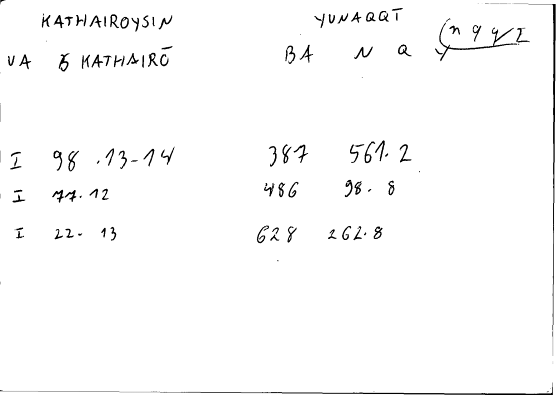 KATHAIROYSIN YUNAQQĪ (n q y I
UA KATHAIRŌ BA N Q
I 98 .13-14 387 561.2
I 77.12 486 98.8
I 22. 13 628 262.8